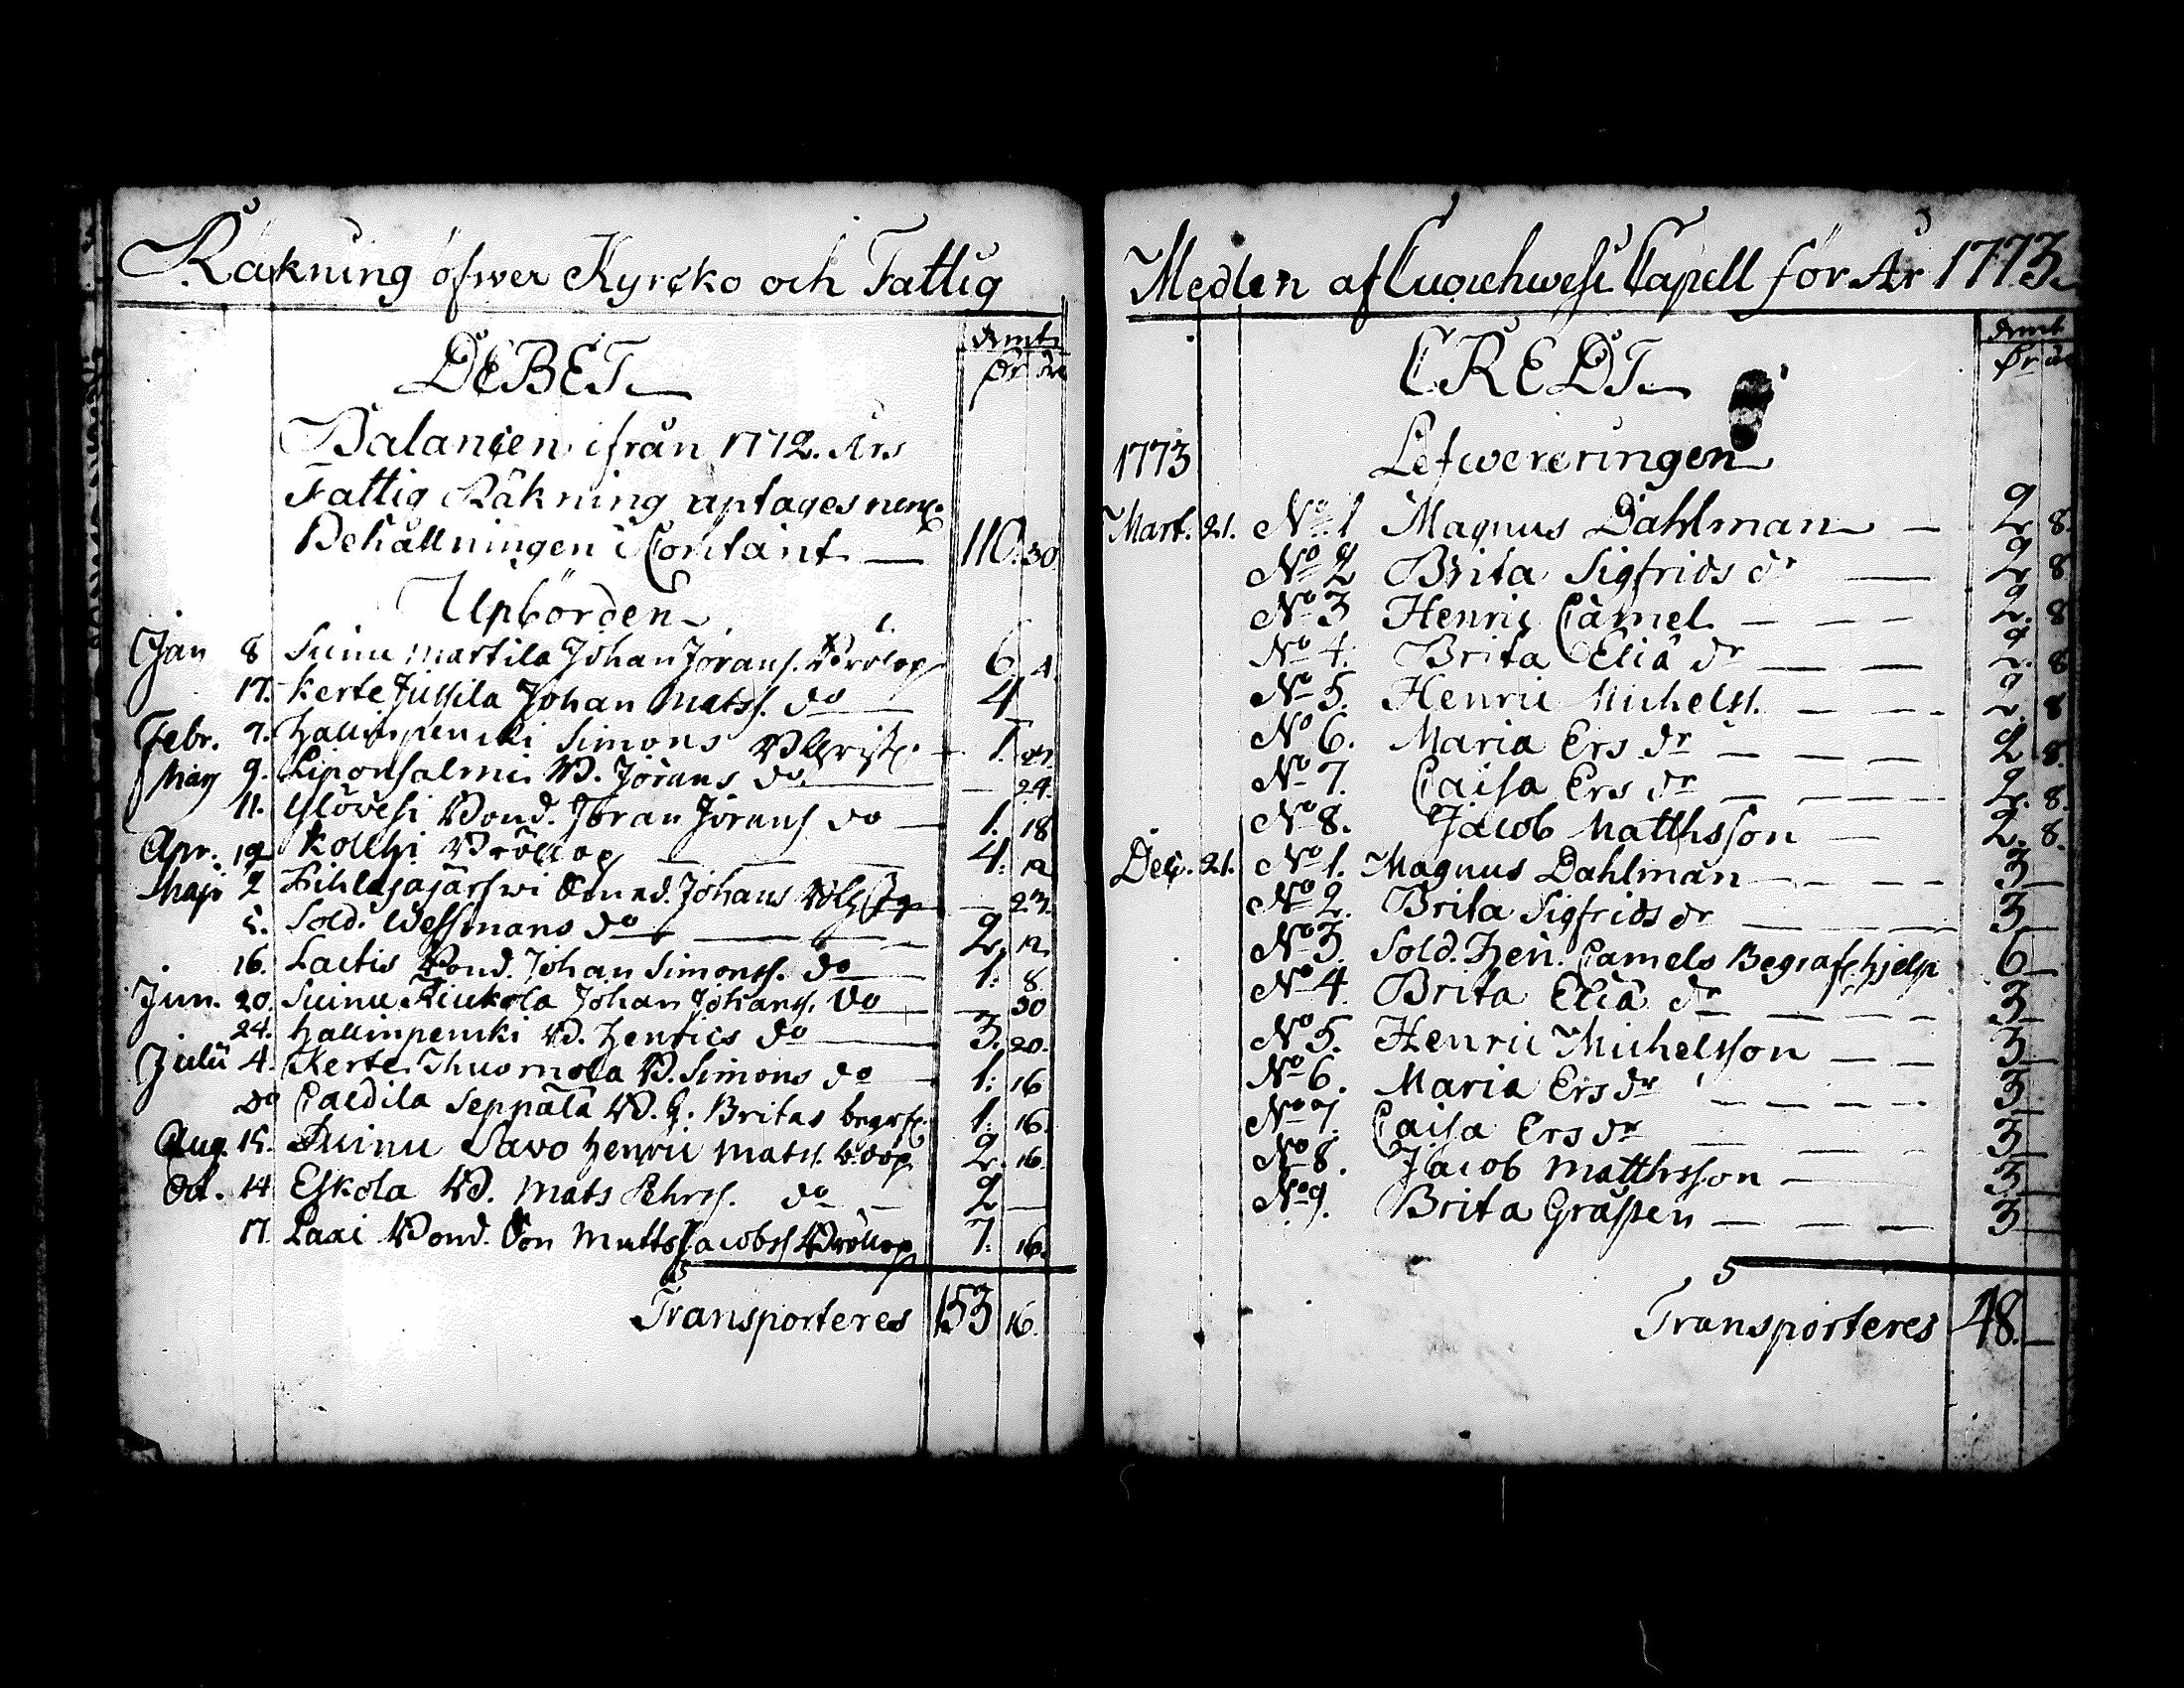 Räkning öfwer Kyrcko och Fattig
DEBET
Kmt
Dr öre
Balancen ifrån 1772. Års
Fattig Räkning aptages neml.
Behållningen i Contant — 110. 30.
Upbörden
Jan 8 Suinu Martila Johan Jörans. Brölop 6 4.
17. Kerte Jussila Johan Matss. do — 4
Febr. 7. Hallinpencki Simons — 1.
Mars 9. Liponsalmi W. Jörans do — 24.
11. Ylövesi Bond. Jöran Jörans do — 1. 18
Apr. 12 Kolchi Bröllop — 4. 12
Maji 2 Johans — 23.
5. Sold. Wessmans do — 2 12
16. Lactis Bond. Johan Simonss. do — 1: 8
Jun. 20. Suinu Kiukola Johan Johanss. do — 30
24. Hallinpencki W. Henrics do — 3. 20.
Julii 4. Kerte Thuomola W. Simons do — 1: 16
do Caldila Seppälä W. H. Britas begrf. 1: 16.
Aug. 15. Suinu Savo Henric Mats. 2. 16.
Oct. 14 Eskola W. Mats Pehrss. do — 2 —
17. Laxi Bond. Son Matts Jacobss Bröllop 7: 16.
Transporteres 153 16.
Medlen af Cuorehwesi Capell för År 1773.
CREDT
Kmt
Dr öre
1773 Lefwereringen
Mart. 21. No 1 Magnus Dahlman — 2 8.
No 2 Brita Sigfrids dr — 2 8
No 3 Henric Camel — 2. 8
No 4. Brita Eliä dr — 2. 8
No 5. Henric Michelss. — 2. 8
No 6. Maria Ers dr — 2 8.
No 7. Caisa Ers dr — 2. 8.
No 8. Jacob Matthsson — 2. 8.
Dec. 21. No 1. Magnus Dahlman — 3 —
No 2. Brita Sigfrids dr — 3 —
No 3. Sold. Hen. Camels Begrafn. hjelp 6 —
No 4 Brita Eliä dr — 3 —
No 5. Henric Michelsson — 3 —
No 6. Maria Ers dr — 3
No 7. Caisa Ers dr — 3 —
No 8. Jacob Matthsson — 3 —
No 9. Brita Gråsten — 3 —
Transporteres 48. —